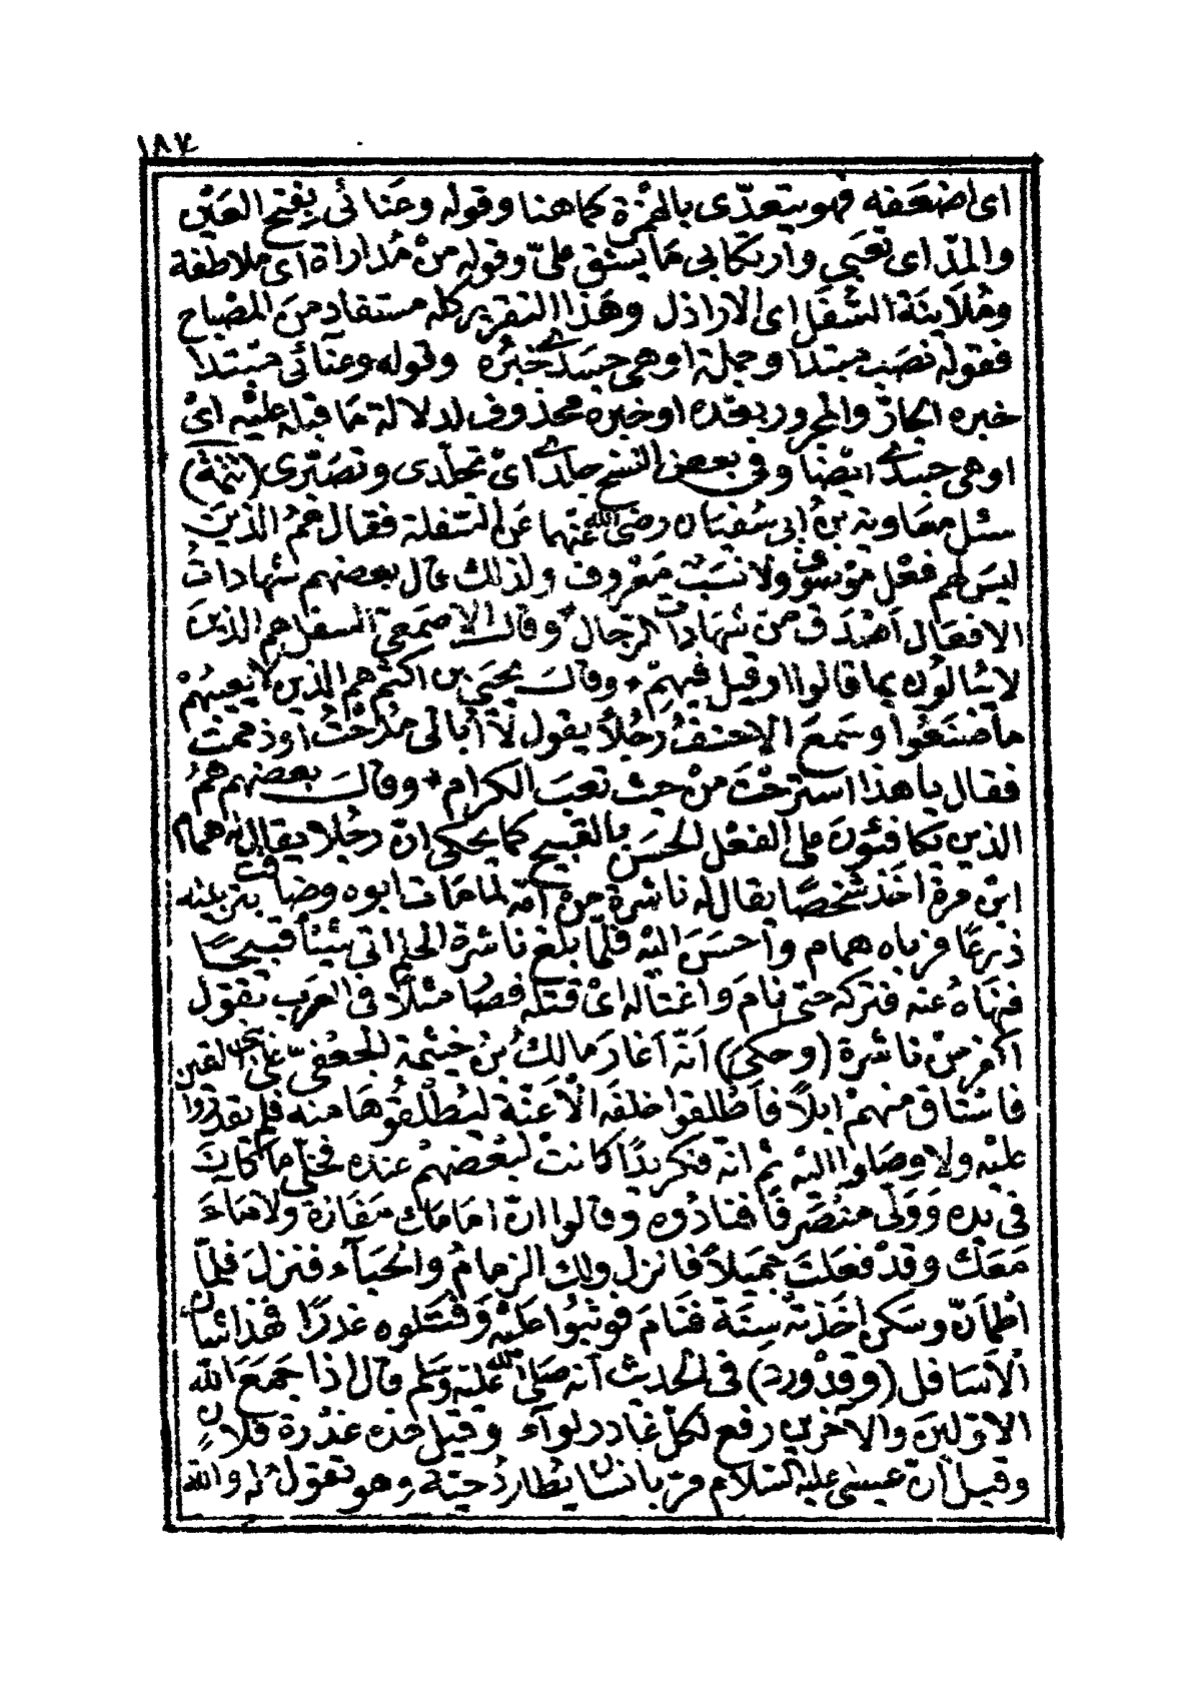 ١٨٧
اى اضعفه فهو يتعدّى بالهمزة كما هنا وقوله وعنائى بفتح العين
والمدّ اى تعبى وارتكابى ما يشق علىّ وقوله من مُداراة اى ملاطفة
وملاينة السُّفَل اى الاراذل وهذا التقرير كله مستفاد من المصباح
فقوله نصب مبتدا وجملة اوهى جسدى خبره وقوله وعنآئى مبتدا
خبره الجارّ والمجرور بعده او خبره محذوف لدلالة ما قبله عليه اىْ
اوهى جسدى ايضا وفى بعض النسخ جلدى اىْ تجلّدى وتصبّرى (تتمة)
سئل معاوية بن أبى سفيان رضى الله عنهما عن السّفلة فقال هم الذين
ليس لهم فعل موسوف ولا نسب معروف ولذلك قال بعضهم شهادات
الافعال اصْدق من شهادات الرجال وقال الاصمعى السفل هم الذين
لا يبالون بما قالوا او قيل فيهم * وقالـ يحيى بن اكثم هم الذين لا يعيبهم
ما صنعوا وسمع الاحنف رجُلاً يقول لا أُبالى مُدحْتُ اوذممت
فقال يا هذا استرحْتَ منْ حيث تعبَ الكرام * وقالـ بعضهم همُ
الذين يكافئون على الفعْل الحسَن بالقبيح كما يحكى انّ رجُلا يقال له همام
ابن مرة اخذ شخصًا يقال له ناشرة من امّه لما مات ابوه وضاقت بتربيته
ذرعًا فرباه همام وأحسَنَ اليْه فلّما بلغ ناشرة الحلم اتى شيئاً قبيحًا
فنهاهُ عنه فتركه حتى نامَ واغتاله اىْ قتله فصار مثلاً فى العرب تقول
اكفر منْ ناشرة (وحكىَ) أنّه أغار مالكُ بن خيثمة الجعفىّ على بنى القين
فاستاق منهمْ ابلاً فأطْلقوا خلفَه الأعنّة ليُطْلقوها منه فلم يقدروا
عليْه ولا وصلوا اليْه ثم انه فكر يدًا كانتْ لبعْضهمْ عنده فخلّى ما كان
فى يده وَوَلى منصرفًا فنادوه وقالوا انّ امامك مفازة ولا ماءَ
مَعَك وقدْ فعلتَ جميلاً فانزل ولك الزمامُ والحبآء فنزلَ فلمّا
اطْمأنّ وسكن اخذتْه سِنَة فنامَ فوثبُوا عليْه وَقتلوه غدرًا فهذا شأن
الأسافل (وقدْ ورد) فى الحديث أنه صلى الله عليه وسلم قال اذا جمعَ الله
الاوّلينَ والآخرين رفع لكلّ غادر لوآء وقيل هذه غدْرة فلانٍ
وقيل أنّ عيسى عليه السّلام مرّ بانسان يُطاردُ حيّة وهو تقول له والله